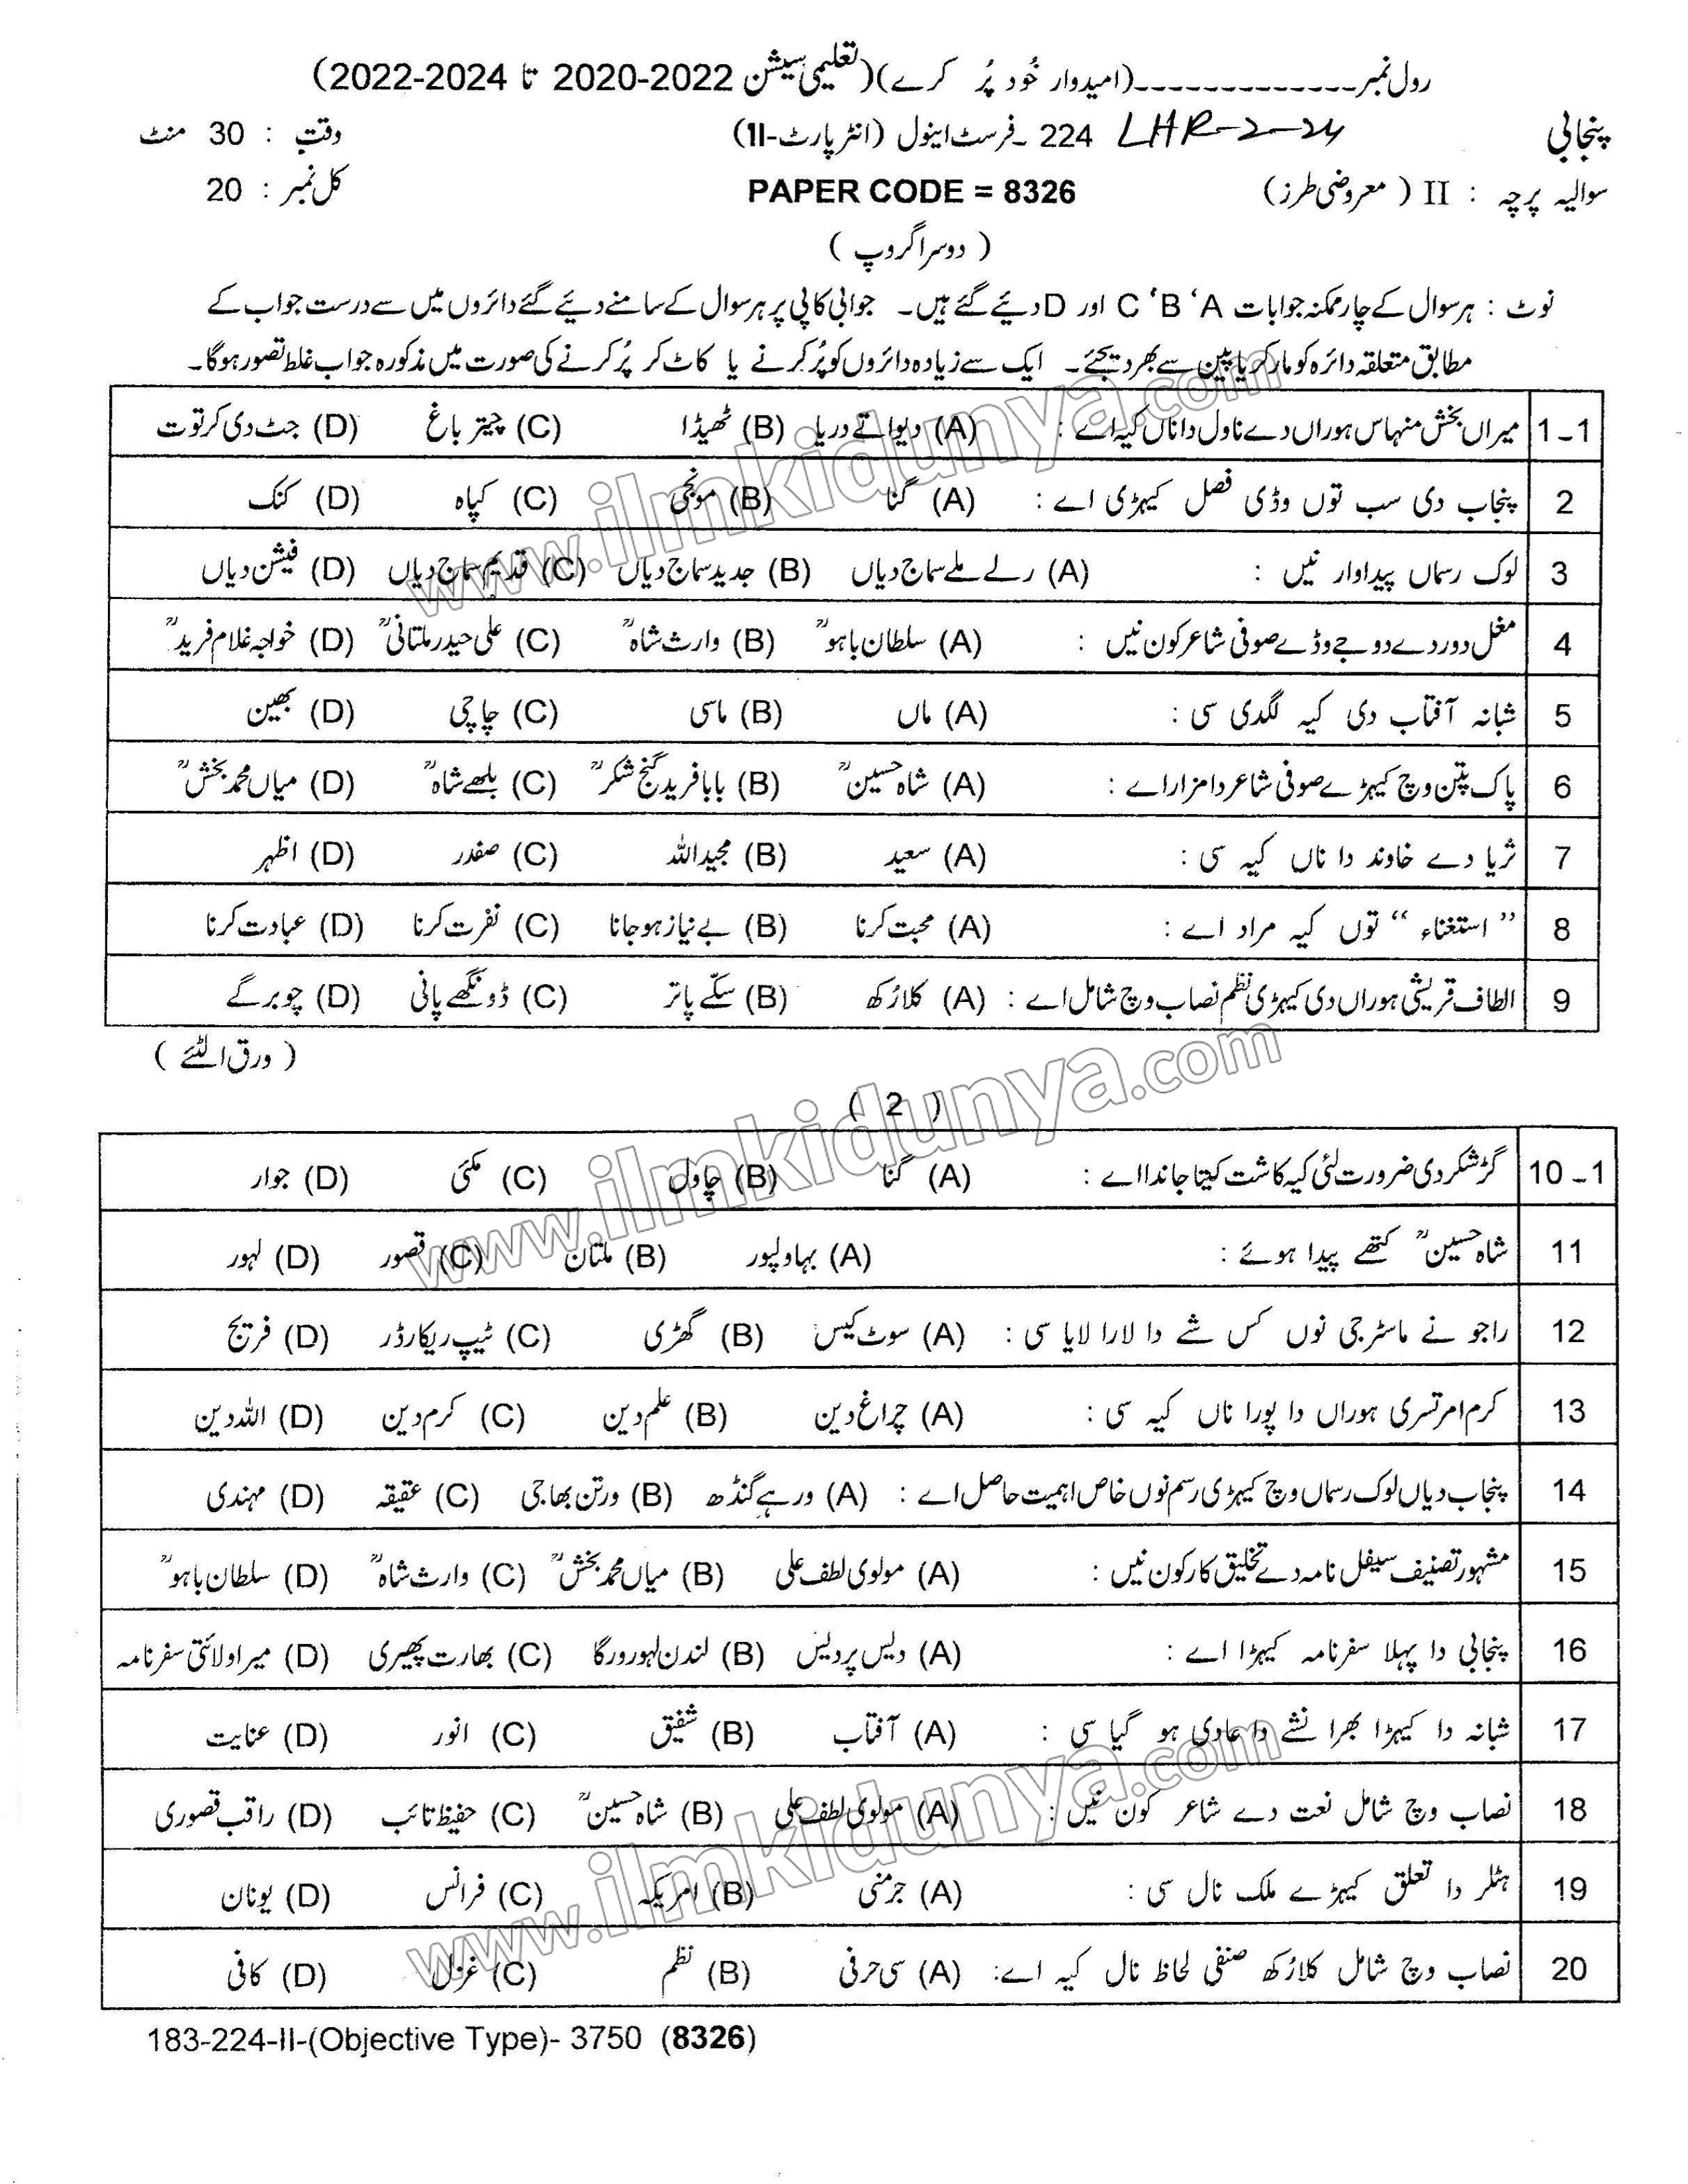 رول نمبر ـ ـ ـ ـ ـ ـ ـ ـ ـ ـ ـ ـ ـ (امیدوار خُود پُر کرے)(تعلیمی سیشن 2022-2020 تا 2024-2022)
پنجابی LHR-2-24 224 ۔فرسٹ اینول (انٹر پارٹ-II) وقت : 30 منٹ
سوالیہ پرچہ : II ( معروضی طرز) PAPER CODE = 8326 کل نمبر : 20
( دوسرا گروپ )
نوٹ : ہر سوال کے چار ممکنہ جوابات A ‘B ‘C اور D دیئے گئے ہیں۔ جوابی کاپی پر ہر سوال کے سامنے دیئے گئے دائروں میں سے درست جواب کے
مطابق متعلقہ دائرہ کو مارکر یا پین سے بھر دیجئے۔ ایک سے زیادہ دائروں کو پُر کرنے یا کاٹ کر پُر کرنے کی صورت میں مذکورہ جواب غلط تصور ہوگا۔
1-1 میراں بخش منہاس ہوراں دے ناول دا ناں کیہ اے : (A) دیوا تے دریا (B) ٹھیڈا (C) چیتر باغ (D) جٹ دی کرتوت
2 پنجاب دی سب توں وڈی فصل کیہڑی اے : (A) گنا (B) مونجی (C) کپاہ (D) کنک
3 لوک رسماں پیداوار نیں : (A) رلے ملے سماج دیاں (B) جدید سماج دیاں (C) قدیم سماج دیاں (D) فیشن دیاں
4 مغل دور دے دوجے وڈے صوفی شاعر کون نیں : (A) سلطان باہوؒ (B) وارث شاہؒ (C) علی حیدر ملتانیؒ (D) خواجہ غلام فریدؒ
5 شبانہ آفتاب دی کیہ لگدی سی : (A) ماں (B) ماسی (C) چاچی (D) بھین
6 پاک پتن وچ کیہڑے صوفی شاعر دا مزار اے : (A) شاہ حسینؒ (B) بابا فرید گنج شکرؒ (C) بلھے شاہؒ (D) میاں محمد بخشؒ
7 ثریا دے خاوند دا ناں کیہ سی : (A) سعید (B) مجید اللہ (C) صفدر (D) اظہر
8 ” استغناء “ توں کیہ مراد اے : (A) محبت کرنا (B) بے نیاز ہو جانا (C) نفرت کرنا (D) عبادت کرنا
9 الطاف قریشی ہوراں دی کیہڑی نظم نصاب وچ شامل اے : (A) کلا رُکھ (B) سکے پاتر (C) ڈونگھے پانی (D) چوبرگے
( ورق الٹئے )
( 2 )
10-1 گڑ شکر دی ضرورت لئی کیہ کاشت کیتا جاندا اے : (A) گنا (B) چاول (C) مکئی (D) جوار
11 شاہ حسینؒ کتھے پیدا ہوئے : (A) بہاولپور (B) ملتان (C) قصور (D) لہور
12 راجو نے ماسٹر جی نوں کس شے دا لارا لایا سی : (A) سوٹ کیس (B) گھڑی (C) ٹیپ ریکارڈر (D) فریج
13 کرم امرتسری ہوراں دا پورا ناں کیہ سی : (A) چراغ دین (B) علم دین (C) کرم دین (D) اللہ دین
14 پنجاب دیاں لوک رسماں وچ کیہڑی رسم نوں خاص اہمیت حاصل اے : (A) ورہے گنڈھ (B) ورتن بھاجی (C) عقیقہ (D) مہندی
15 مشہور تصنیف سیفل نامہ دے تخلیق کار کون نیں : (A) مولوی لطف علی (B) میاں محمد بخشؒ (C) وارث شاہؒ (D) سلطان باہوؒ
16 پنجابی دا پہلا سفر نامہ کیہڑا اے : (A) دیس پردیس (B) لندن لہور ورگا (C) بھارت پھیری (D) میرا ولائتی سفر نامہ
17 شبانہ دا کیہڑا بھرا نشے دا عادی ہو گیا سی : (A) آفتاب (B) شفیق (C) انور (D) عنایت
18 نصاب وچ شامل نعت دے شاعر کون نیں : (A) مولوی لطف علی (B) شاہ حسینؒ (C) حفیظ تائب (D) راقب قصوری
19 ہٹلر دا تعلق کیہڑے ملک نال سی : (A) جرمنی (B) امریکہ (C) فرانس (D) یونان
20 نصاب وچ شامل کلا رُکھ صنفی لحاظ نال کیہ اے: (A) سی حرفی (B) نظم (C) غزل (D) کافی
183-224-II-(Objective Type)- 3750 (8326)
www.ilmkidunya.com
www.ilmkidunya.com
www.ilmkidunya.com